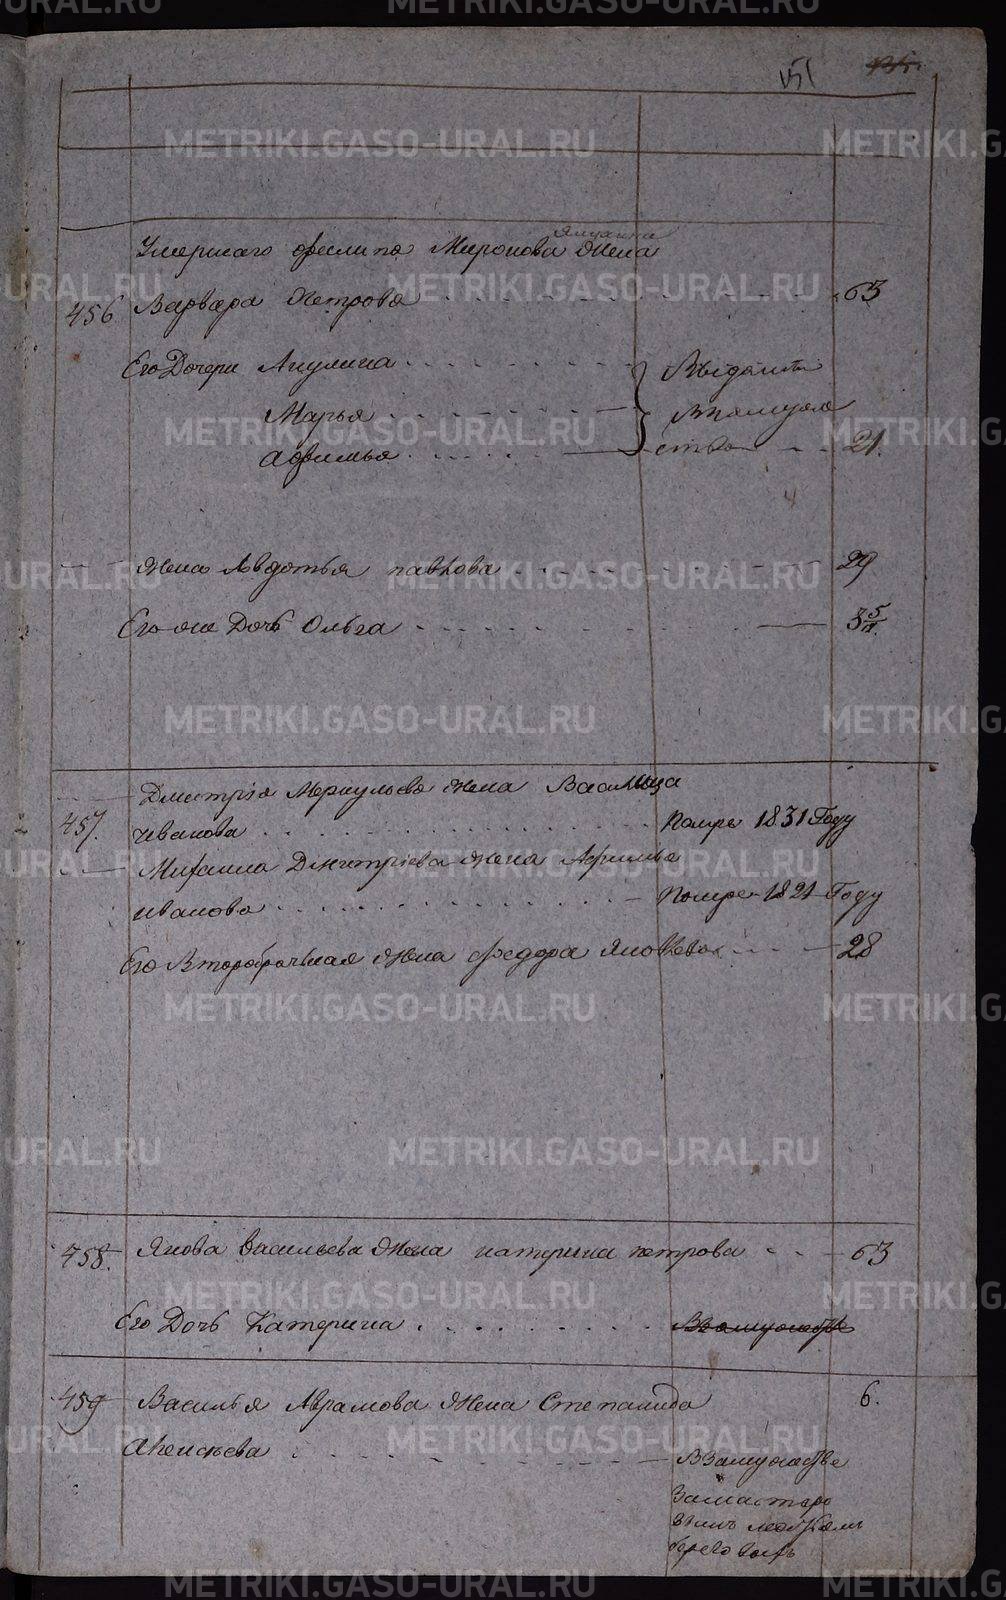 151
Умершаго Филипа Миронова Жена
456 Варвара Петрова 63
Его Дочери Акулина Выданы
Марья в замуже
Афимья ство 21.
Жена Авдотья павлова 29
Его же Дочь Ольга 3 5/м.
Дмитрия Меркульева жена Василиса
457. Иванова Помре 1831 Году
Михаила Дмитріева жена Афимья
иванова Помре 1821 Году
Его Второбрачная жена Федора Яковлева 28
458. Якова Васильева Жена катерина петрова 63
Его Дочь Катерина В замужестве
459 Василья Аврамова Жена Степанида 6.
Алексеева В Замужестве
За мастеро
вымъ
METRIKI.GASO-URAL.RU